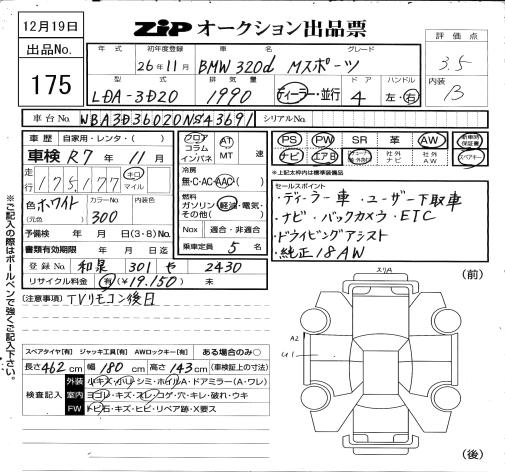 12月19日
出品No.
175
ZiP オークション出品票
評価点
3.5
内装
B
年式 初年度登録 車名 グレード
26年11月 BMW 320d Mスポーツ
型式 排気量 ドア ハンドル
LDA-3D20 1990 ディーラー・並行 4 左・右
車台No. WBA3D36020NS43691 シリアルNo.
車歴 自家用・レンタ・( )
車検 R7年 11月
走行 175,177 キロ マイル
色 ホワイト (元色) カラーNo. 300 内装色
予備検 年 月 日(3・8)No.
書類有効期限 年 月 日
登録No. 和泉 301 や 2430
リサイクル料金 有(¥19,150) 未
フロア コラム インパネ AT MT 速
冷房 無・C・AC・AAC・( )
燃料 ガソリン・軽油・電気・その他( )
Nox 適合・非適合
乗車定員 5 名
PS PW SR 革 AW 新車時保証書
ナビ エアB 社外ナビ 社外AW スペアキー
*上記太枠内は標準装備品
セールスポイント
・ディーラー車・ユーザー下取車
・ナビ・バックカメラ・ETC
・ドライビングアシスト
・純正18AW
(注意事項) TVリモコン後日
※ご記入の際はボールペンで強くご記入下さい。
スペアタイヤ[有] ジャッキ工具[有] AWロックキー[有] ある場合のみ○
長さ462cm 幅180cm 高さ143cm (車検証上の寸法)
検査記入
外装 小キズ・小U・シミ・ホイルA・ドアミラー(A・ワレ)
室内 ヨゴレ・キズ・スレ・コゲ・穴・キレ・破れ・ウキ
FW トビ石・キズ・ヒビ・リペア跡・X要ス
(前)
スリA
A2
U1
(後)